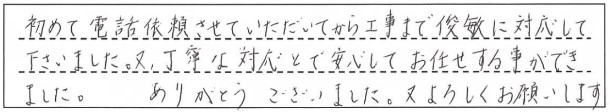 初めて電話依頼させていただいてから工事まで俊敏に対応して
下さいました。又、丁寧な対応とで安心してお任せする事ができ
ました。 ありがとうございました。又よろしくお願いします